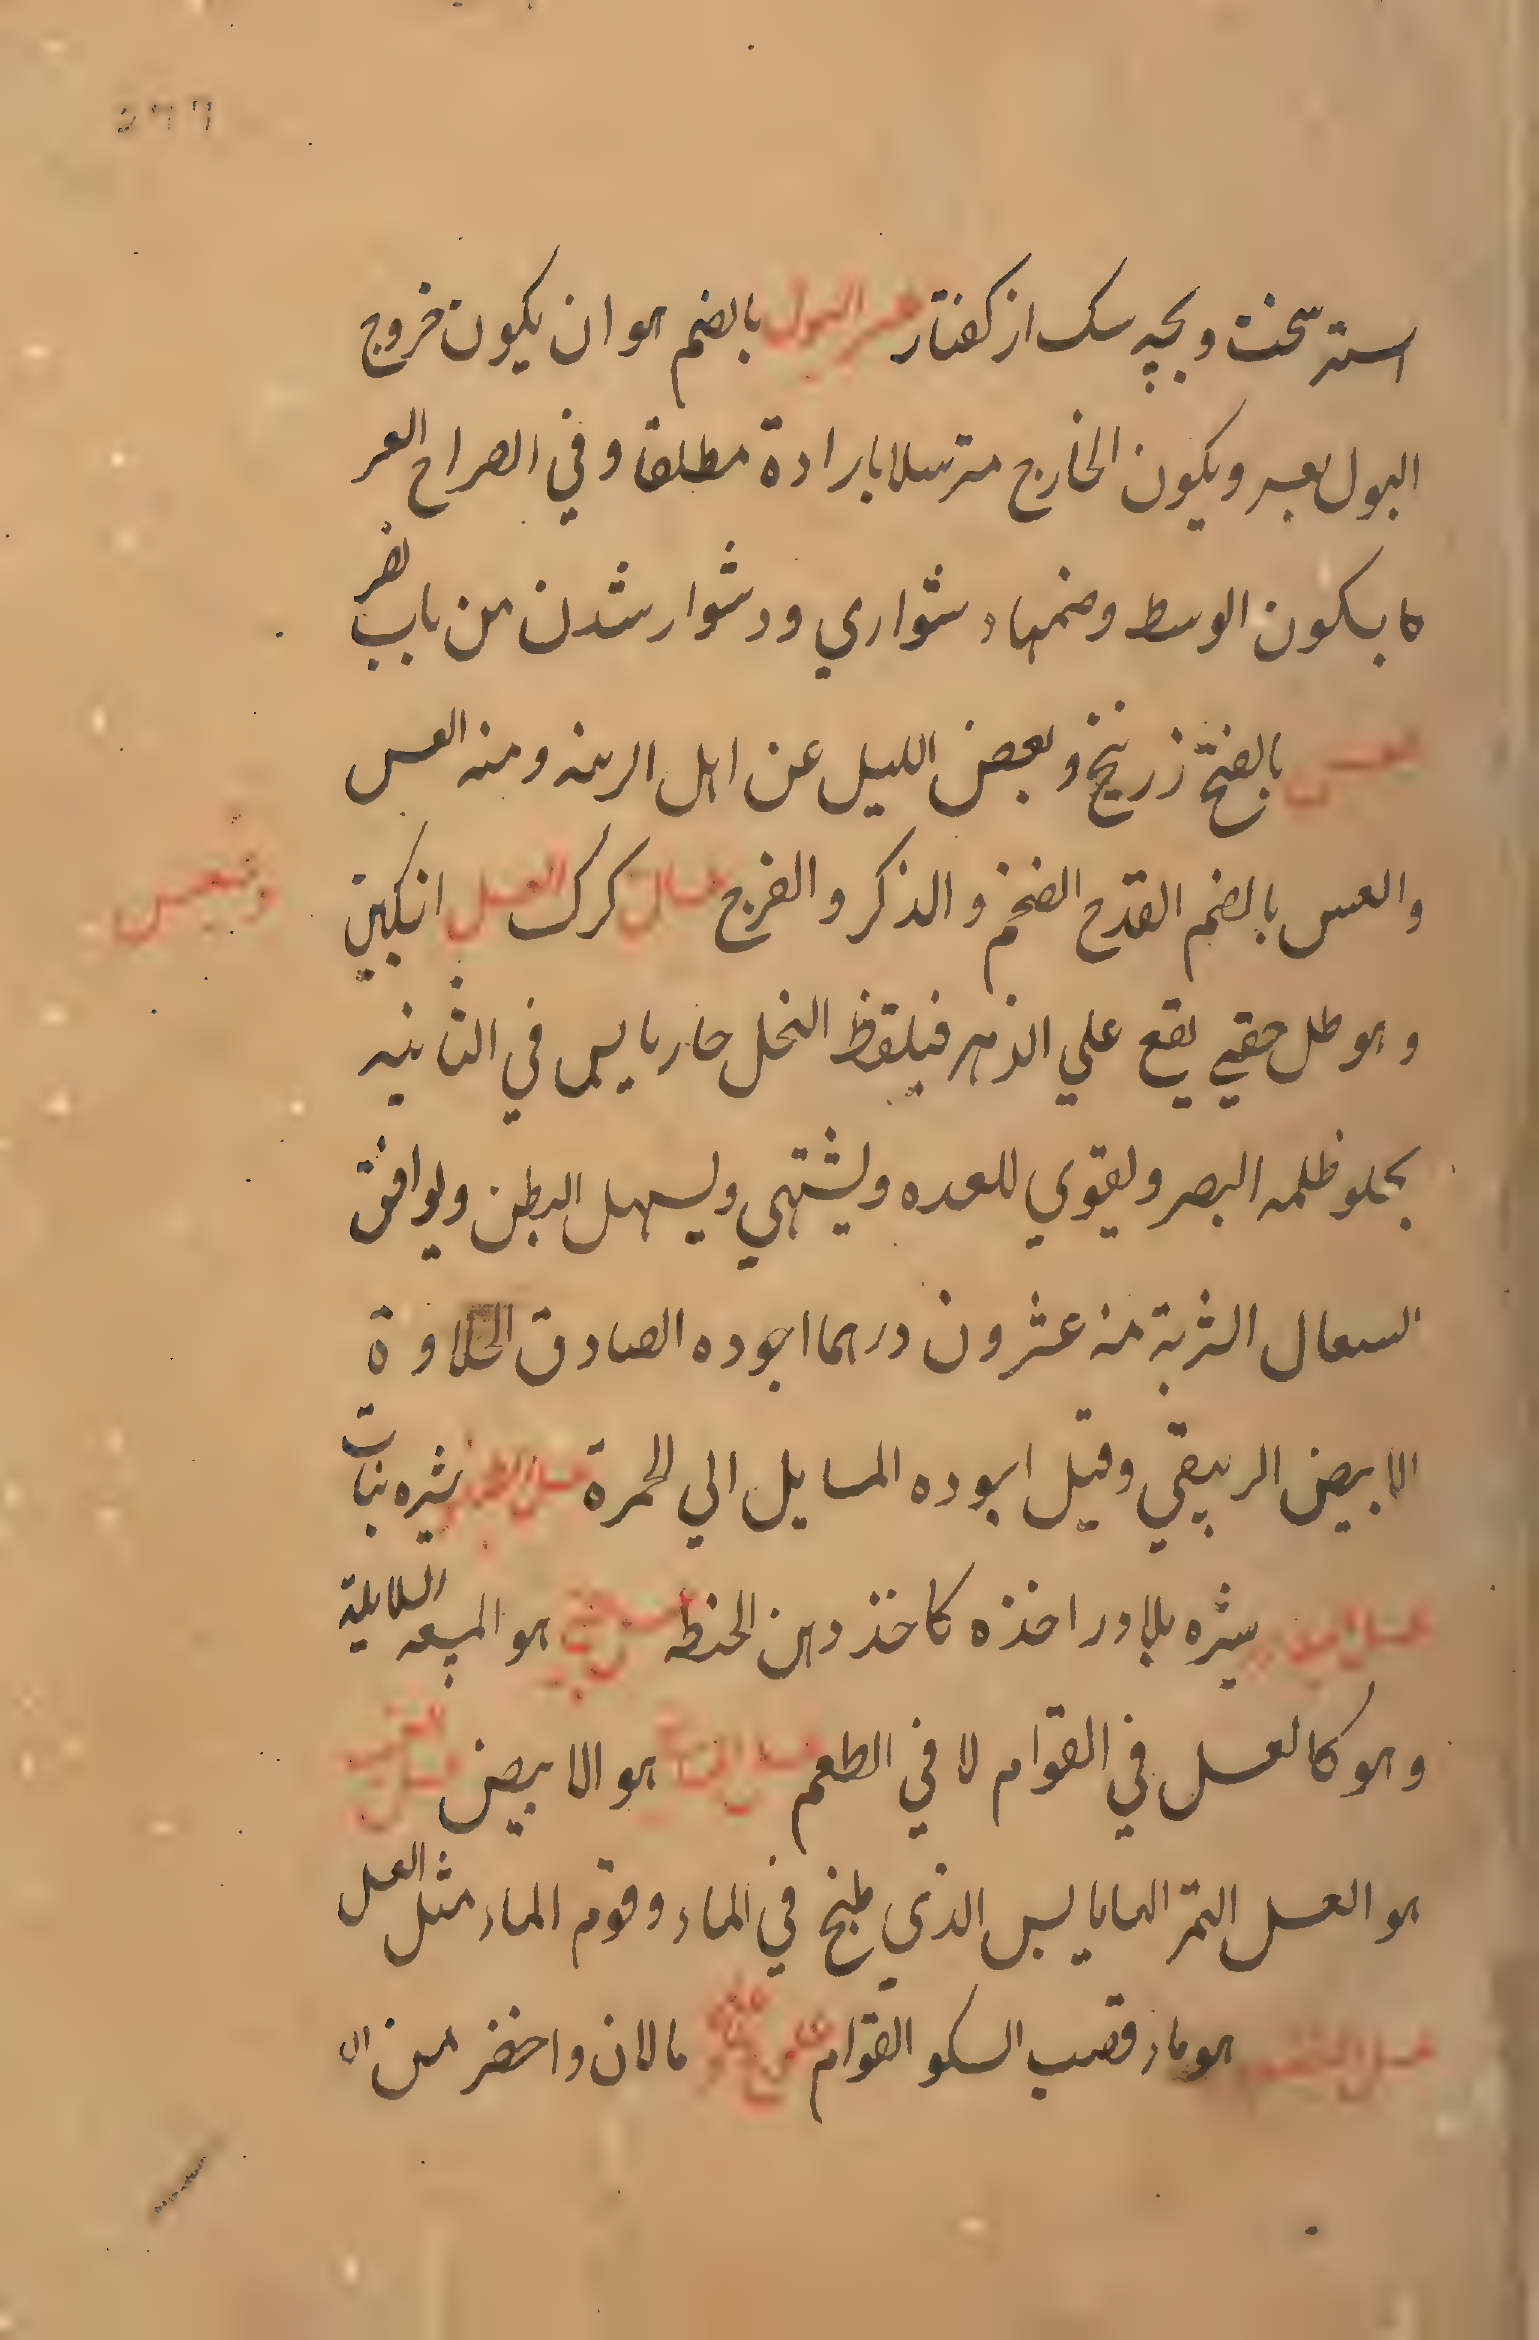 استر سخت و بچه سک از کفتار عسر البول بالضم هو ان یکون خروج
البول بعسر ویکون الخارج مترسلا بارادة مطلقا وفي الصراح العسر
کا بسکون الوسط وضمها دشواري ودشوار شدن من باب نصر
عسس بالفتح زرنیخ وبعض اللیل عن اهل الریبه ومنه العسس
والعس بالضم القدح الضخم والذکر والفرج عسالن کرک العسل انکبین
وهو طل حقیے یقع علي الذهر فیلقظ النحل حار یابس في الثانیه
یجلو ظلمه البصر ویقوي للعده ویشتهي ویسهل البطن ویوافق
السعال الشربة منه عشرون درهما اجوده الصادق الحلاوة
الابیض الربیعي وقیل اجوده المایل الي الحمرة شیره نبات
عسل البلادر شیره بلادر اخذه کاخذ دهن الحنطه هو المیعه السایلة
وهو کالعسل في القوام لا في الطعم هو الابیض عسل القصب
هو العسل التمر الهایابس الذي طبخ في الماء وقوم الماء مثل العسل
عسل القصب هو ماء قصب السکر القوام مالان واخضر من ال